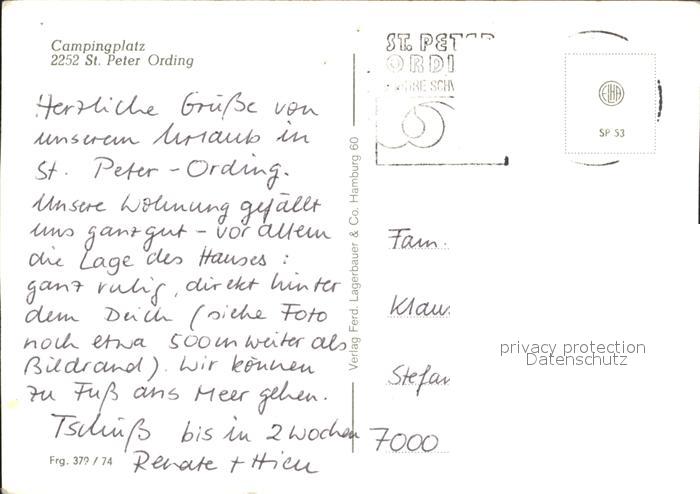 Campingplatz
2252 St. Peter Ording
Herzliche Grüße von
unserem Urlaub in
St. Peter-Ording.
Unsere Wohnung gefällt
uns ganz gut - vor allem
die Lage des Hauses:
ganz ruhig, direkt hinter
dem Deich (siehe Foto
noch etwa 500m weiter als
Bildrand). Wir können
zu Fuß ans Meer gehen.
Tschüß bis in 2 Wochen
Renate +
Frg. 379 / 74
Verlag Ferd. Lagerbauer & Co. Hamburg 60
ST. PET
ORDI
SP 53
Fam.
Klaus
Stefan
7000
privacy protection
Datenschutz